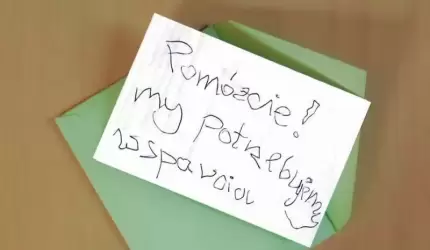 Pomóżcie!
my potrzebujemy
wsparcia